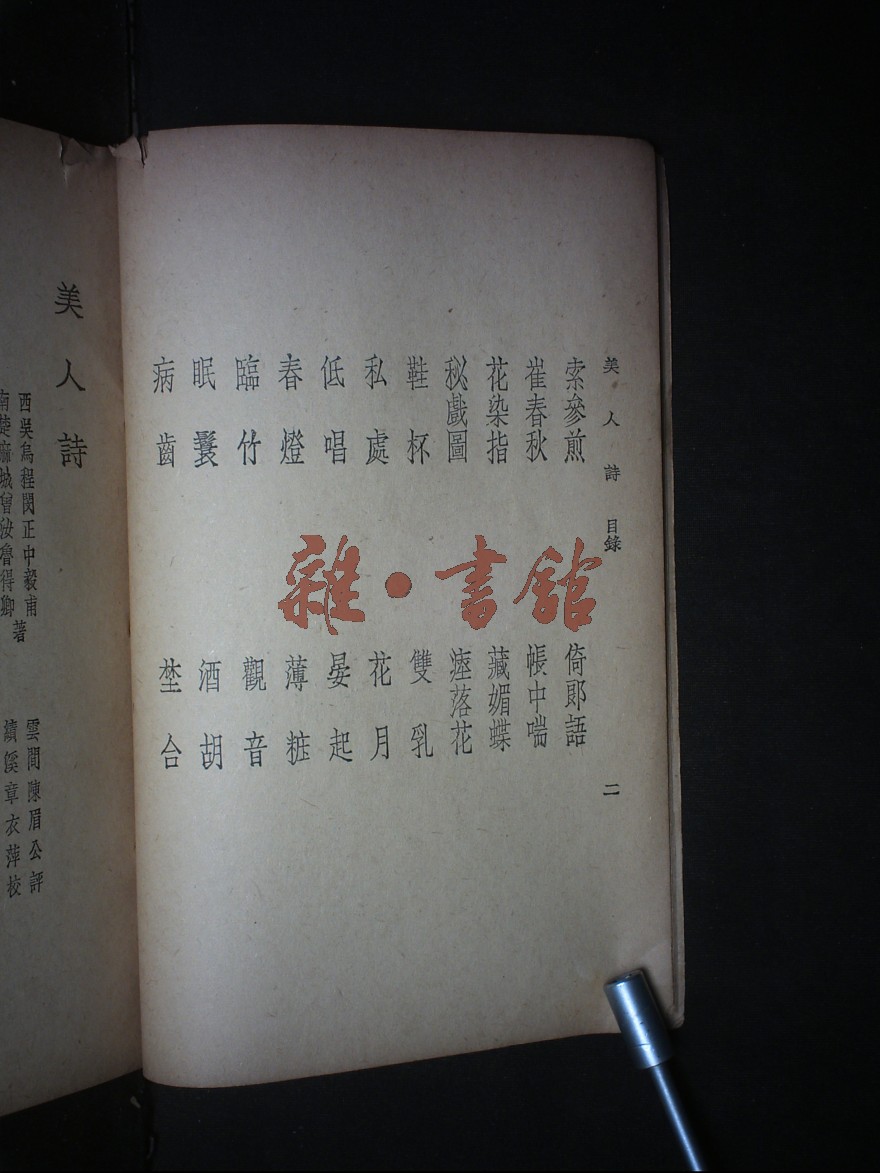 美人詩 目錄 二
索參煎 倚郎語
崔春秋 帳中喘
花染指 藏媚蝶
秘戲圖 瘞落花
鞋杯 雙乳
私處 花月
低唱 晏起
春燈 薄粧
臨竹 觀音
眠鬟 酒胡
病齒 埜合
雜·書館
美人詩
西吳烏程閔正中毅甫
南楚麻城曾汝魯得卿
著
雲間陳眉公評
績溪章衣萍校